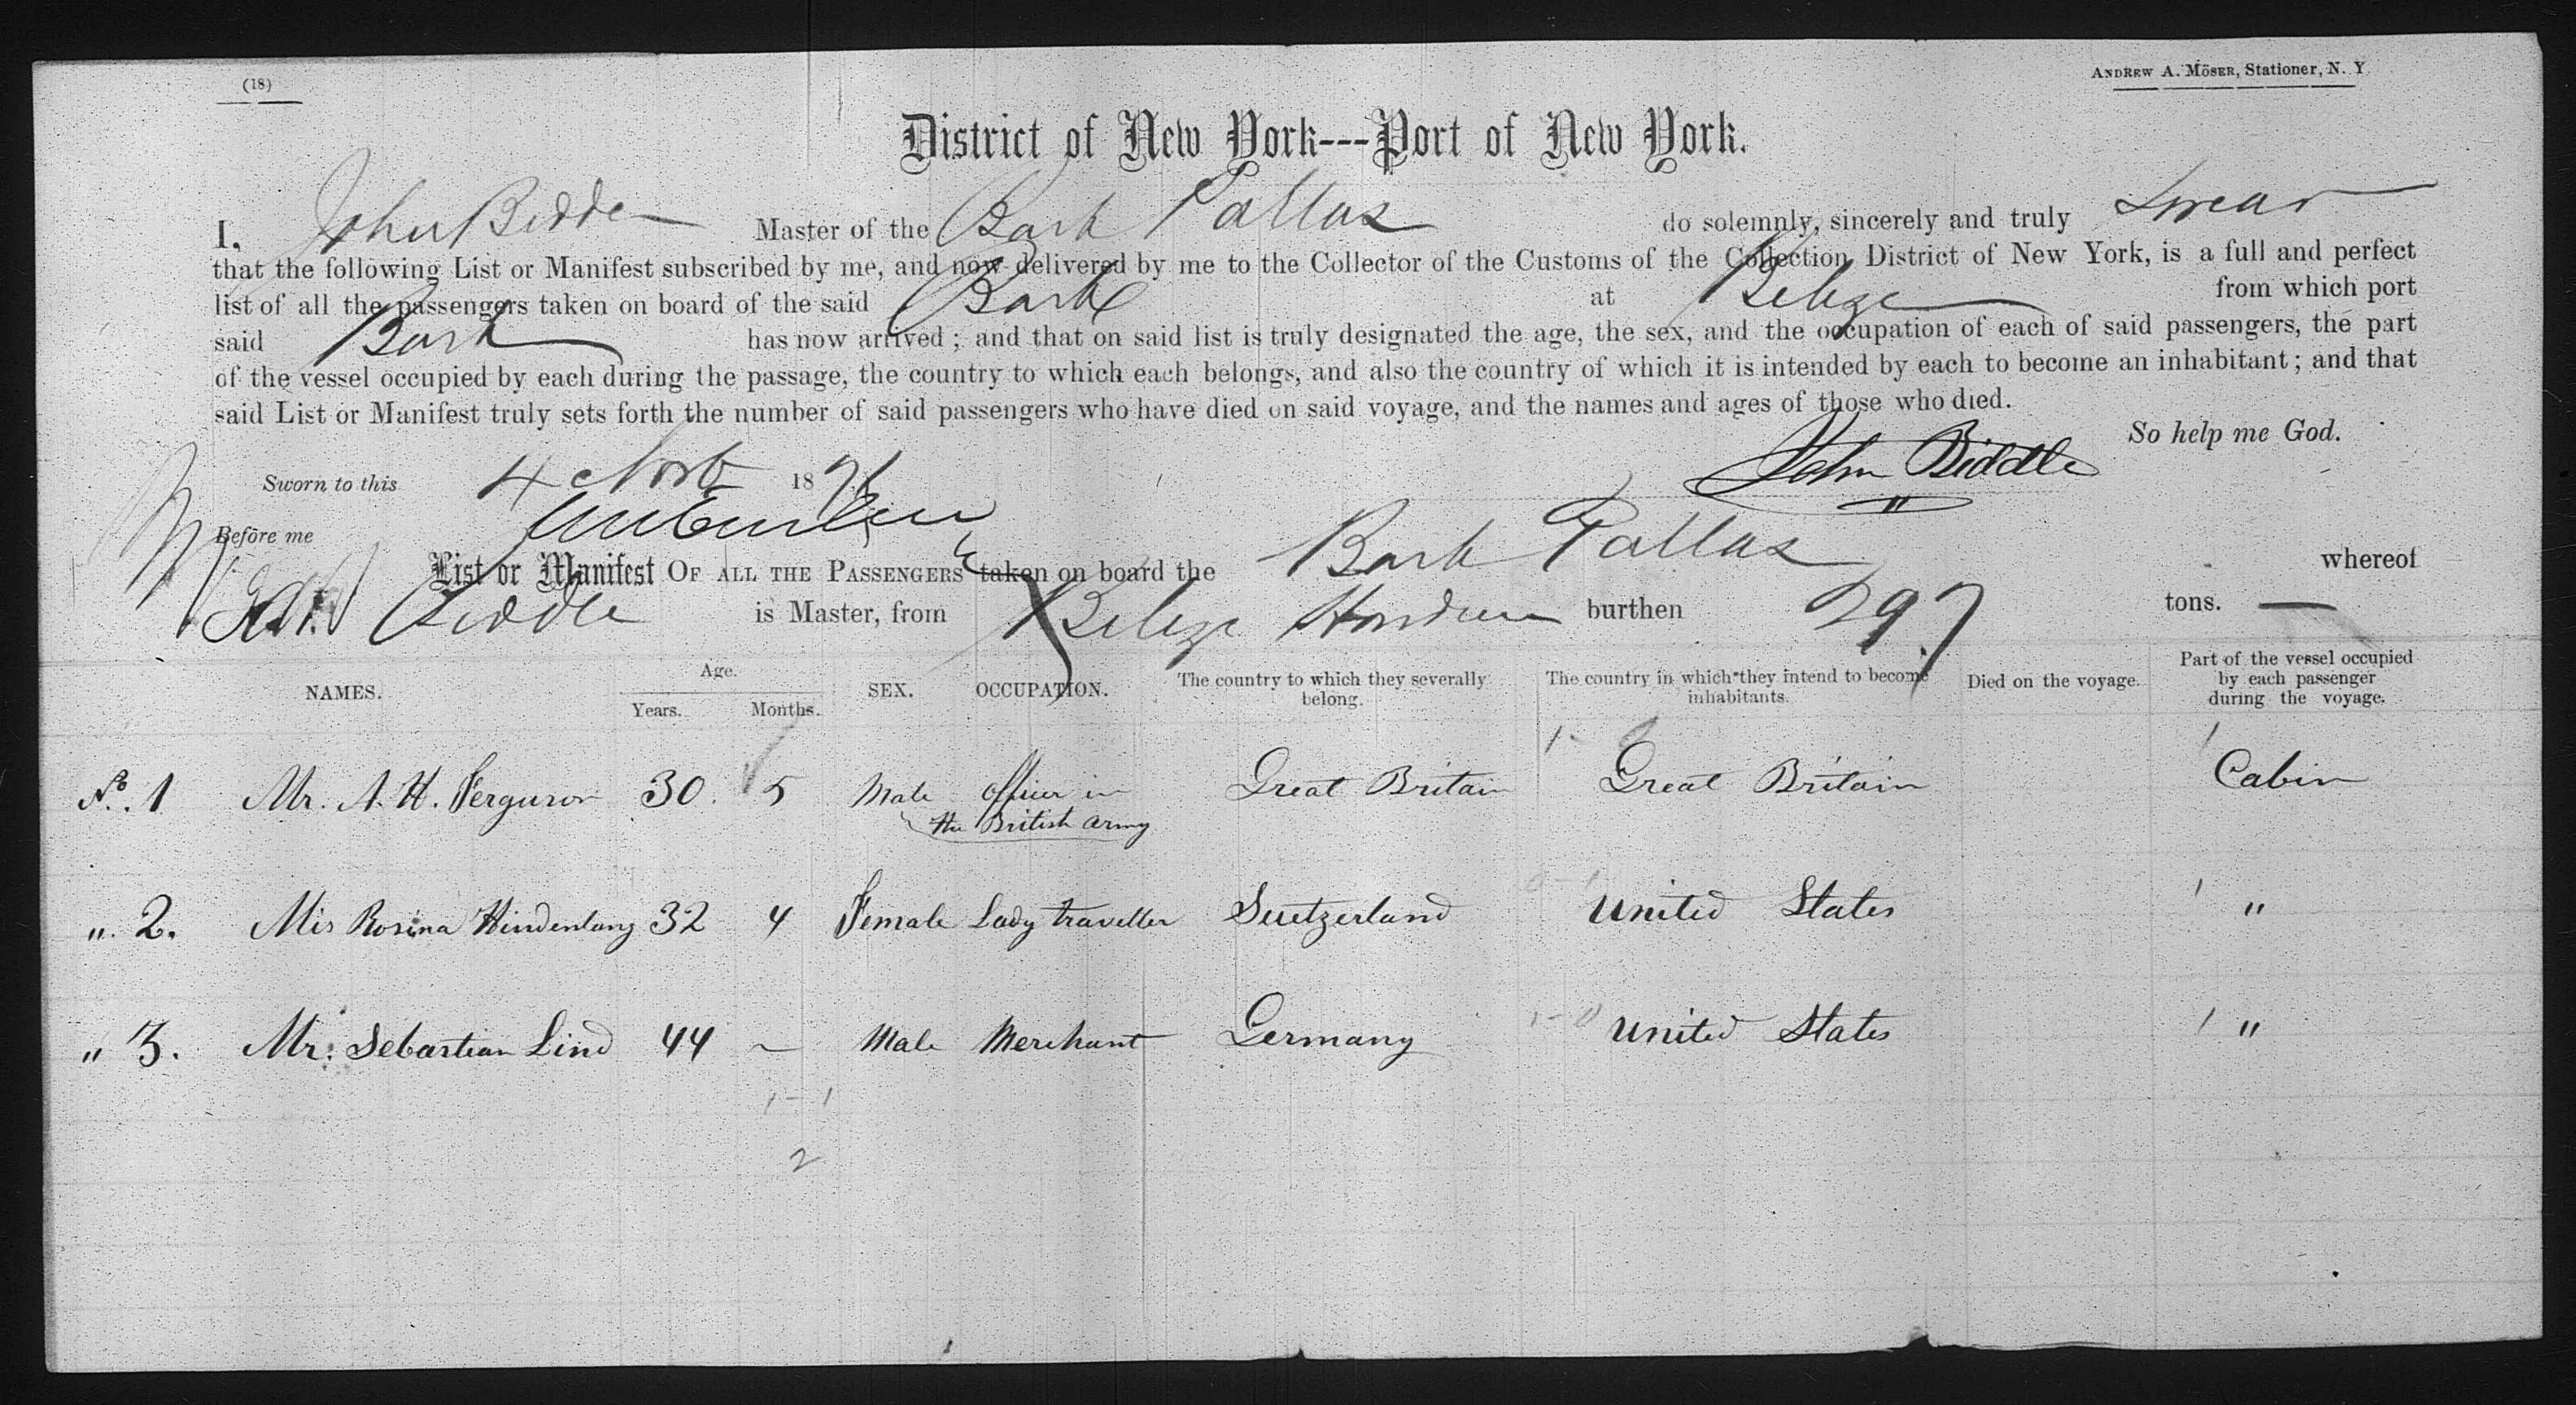 (18)
ANDREW A. MÖSER, Stationer, N. Y.
District of New York---Port of New York.
I, John Bidde Master of the Bark Pallas do solemnly, sincerely and truly Swear
that the following List or Manifest subscribed by me, and now delivered by me to the Collector of the Customs of the Collection District of New York, is a full and perfect
list of all the passengers taken on board of the said Bark at Belize from which port
said Bark has now arrived; and that on said list is truly designated the age, the sex, and the occupation of each of said passengers, the part
of the vessel occupied by each during the passage, the country to which each belongs, and also the country of which it is intended by each to become an inhabitant; and that
said List or Manifest truly sets forth the number of said passengers who have died on said voyage, and the names and ages of those who died.
So help me God.
Sworn to this 4 Novb 1871 John Biddle
Before me
List or Manifest OF ALL THE PASSENGERS taken on board the Bark Pallas whereof
Biddle is Master, from Belize Honduras burthen 297 tons.
NAMES. Age. Years. Months. SEX. OCCUPATION. The country to which they severally belong. The country in which they intend to become inhabitants. Died on the voyage. Part of the vessel occupied by each passenger during the voyage.
No. 1 Mr. A. H. Ferguson 30. 5 Male Officer in the British Army Great Britain Great Britain Cabin
" 2. Mis Rosina Hindenlang 32 4 Female Lady traveller Suetzerland United States "
" 3. Mr. Sebastian Lind 44 ~ Male Merchant Germany United States "
1-1
2